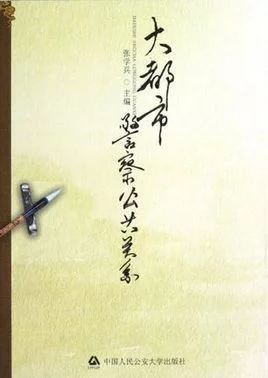 大都市
警察公共关系
张学兵 ◎ 主编
中国人民公安大学出版社